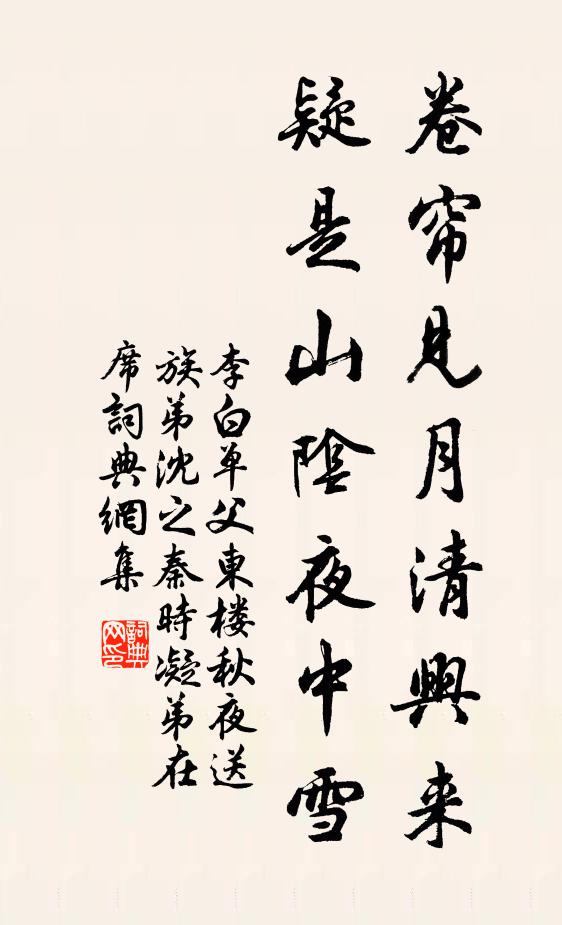 卷帘见月清興来
疑是山陰夜中雪
李白单父東楼秋夜送
族弟沈之秦時凝弟在
席詞典網集
詞典网印